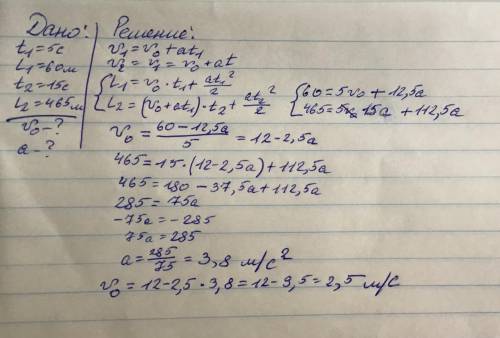 Дано:
t₁=5с
L₁=60м
t₂=15с
L₂=465м
v₀-?
a-?
Решение:
v₁=v₀+at₁
v₂=v₁=v₀+at
{L₁=v₀·t₁+at₁²/2
L₂=(v₀+at₁)·t₂+at₂²/2
{60=5v₀+12,5a
465= 15a+112,5a
v₀=60-12,5a/5=12-2,5a
465=15·(12-2,5a)+112,5a
465=180-37,5a+112,5a
285=75a
-75a=-285
75a=285
a=285/75=3,8 м/с²
v₀=12-2,5·3,8=12-9,5=2,5 м/с